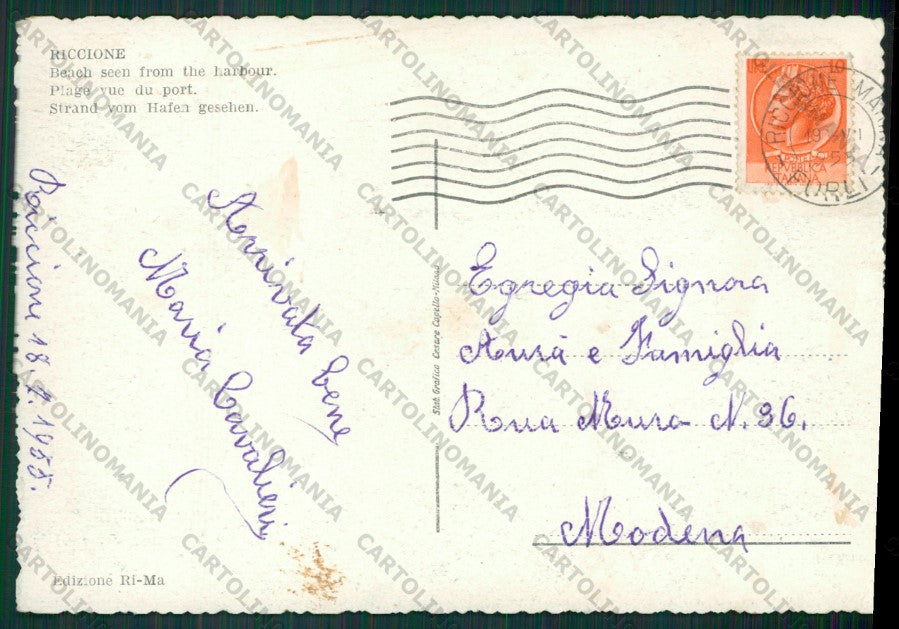 RICCIONE
Beach seen from the harbour.
Plage vue du port.
Strand vom Hafen gesehen.
Riccione 18.7.1955.
Arrivata bene
Maria Cavalieri
Stab. Grafico Cesare Capello-Milano
Egregia Signora
Aurà e Famiglia
Rua Muro N. 96.
Modena
Edizione Ri-Ma
RICCIONE MARINA
FORLI
REPVBBLICA
ITALIANA
CARTOLINOMANIA